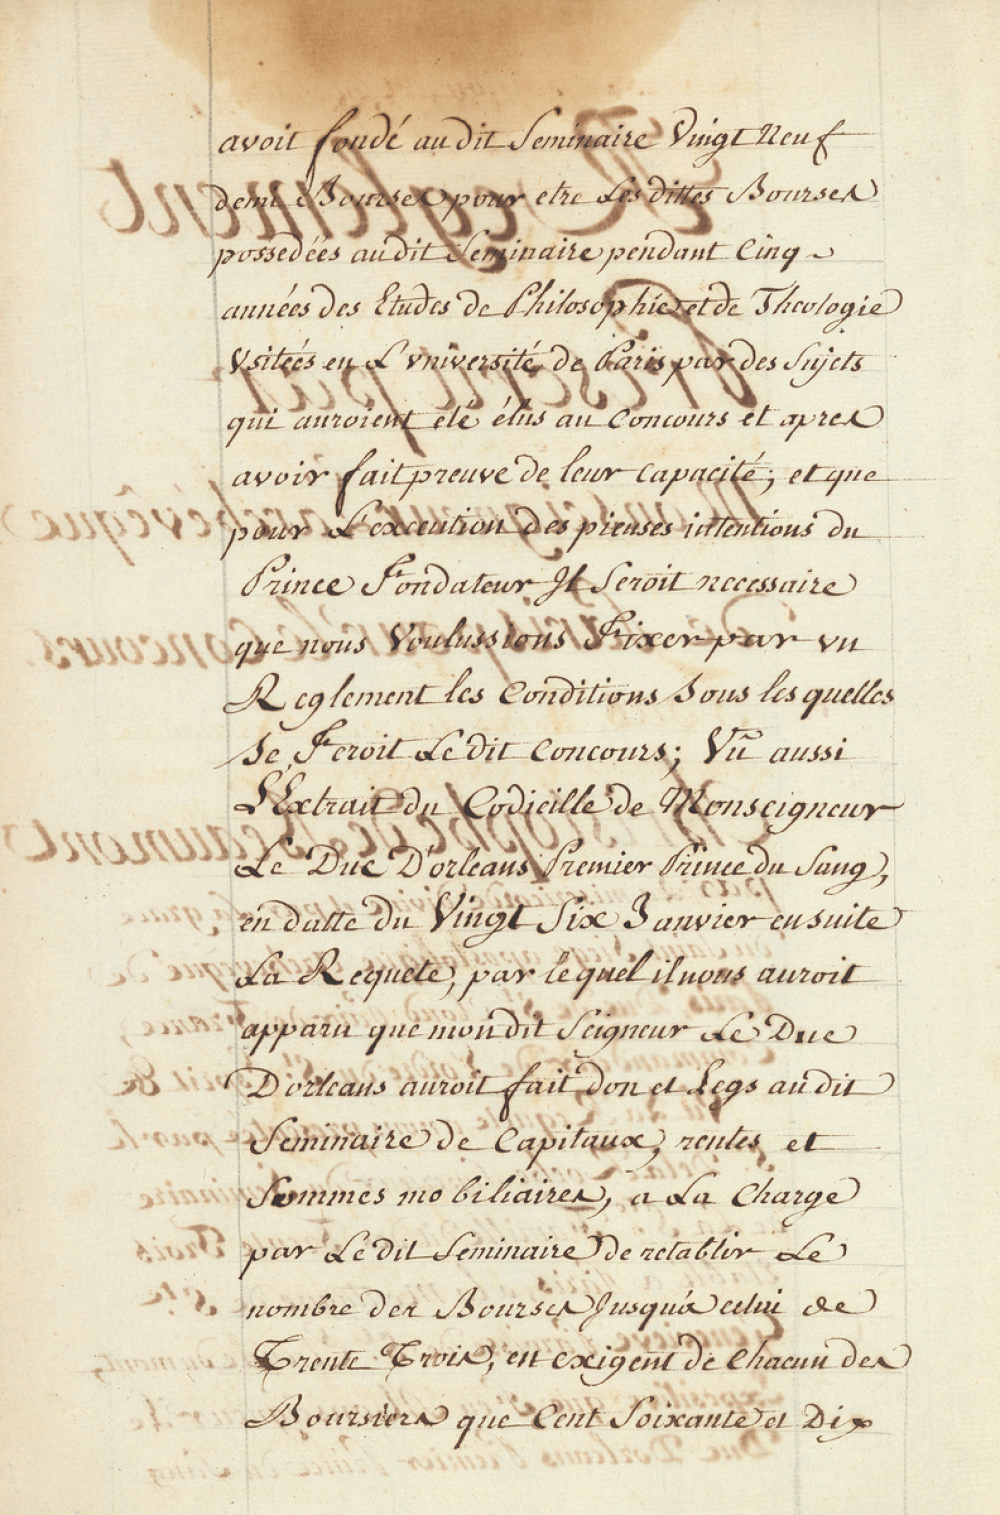 avoit fondé audit Seminaire Vingt Neuf
demi Bourses pour etre Les dittes Bourses
possedées audit Seminaire pendant Cinq
années des Etudes de Philosophie et de Theologie
Usitées en L'université de Paris par des Sujets
qui auroient été élus au Concours et apres
avoir fait preuve de leur Capacité; et que
pour L'execution des pieuses intentions du
Prince Fondateur Jl Seroit necessaire
que nous Voulussions Fixer par un
Reglement les Conditions Sous les quelles
Se Feroit Le dit Concours; Vû aussi
L'Extrait du Codicille de Monseigneur
Le Duc D'orleans Premier Prince du Sang,
en datte du Vingt Six Janvier ensuite
La Requete, par le quel il nous auroit
apparu que mondit Seigneur Le Duc
D'orleans auroit fait don et Legs au dit
Seminaire de Capitaux, rentes et
Sommes mobiliaires, a La Charge
par Le dit Seminaire de retablir Le
nombre des Bourses Jusqu'à celui de
Trente Trois, en exigent de Chacun des
Boursiers que Cent Soixante et Dix